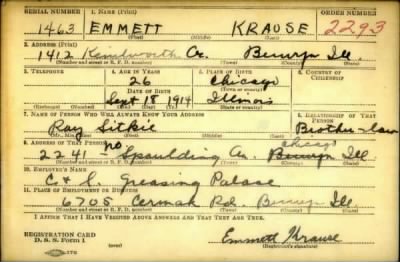 SERIAL NUMBER 1. NAME (Print) ORDER NUMBER
1463 EMMETT KRAUSE 2293
(First) (Middle) (Last)
2. ADDRESS (Print)
1412 Kenilworth Av. Berwyn Ill.
(Number and street or R. F. D. number) (Town) (County) (State)
3. TELEPHONE 4. AGE IN YEARS 5. PLACE OF BIRTH 6. COUNTRY OF CITIZENSHIP
26 Chicago
DATE OF BIRTH (Town or county)
Sept 18 1914 Illinois
(Exchange) (Number) (Mo.) (Day) (Yr.) (State or country)
7. NAME OF PERSON WHO WILL ALWAYS KNOW YOUR ADDRESS 8. RELATIONSHIP OF THAT PERSON
Ray Sitkie Brother-law
(First) (Middle) (Last)
9. ADDRESS OF THAT PERSON
Chicago
2241 no Spaulding Av. Berwyn Ill.
(Number and street or R. F. D. number) (Town) (County) (State)
10. EMPLOYER'S NAME
C & S. Greasing Palace
11. PLACE OF EMPLOYMENT OR BUSINESS
6705 Cermak Rd. Berwyn Ill.
(Number and street or R. F. D. number) (Town) (County) (State)
I AFFIRM THAT I HAVE VERIFIED ABOVE ANSWERS AND THAT THEY ARE TRUE.
REGISTRATION CARD
D. S. S. Form 1
Emmett Krause
(Registrant's signature)